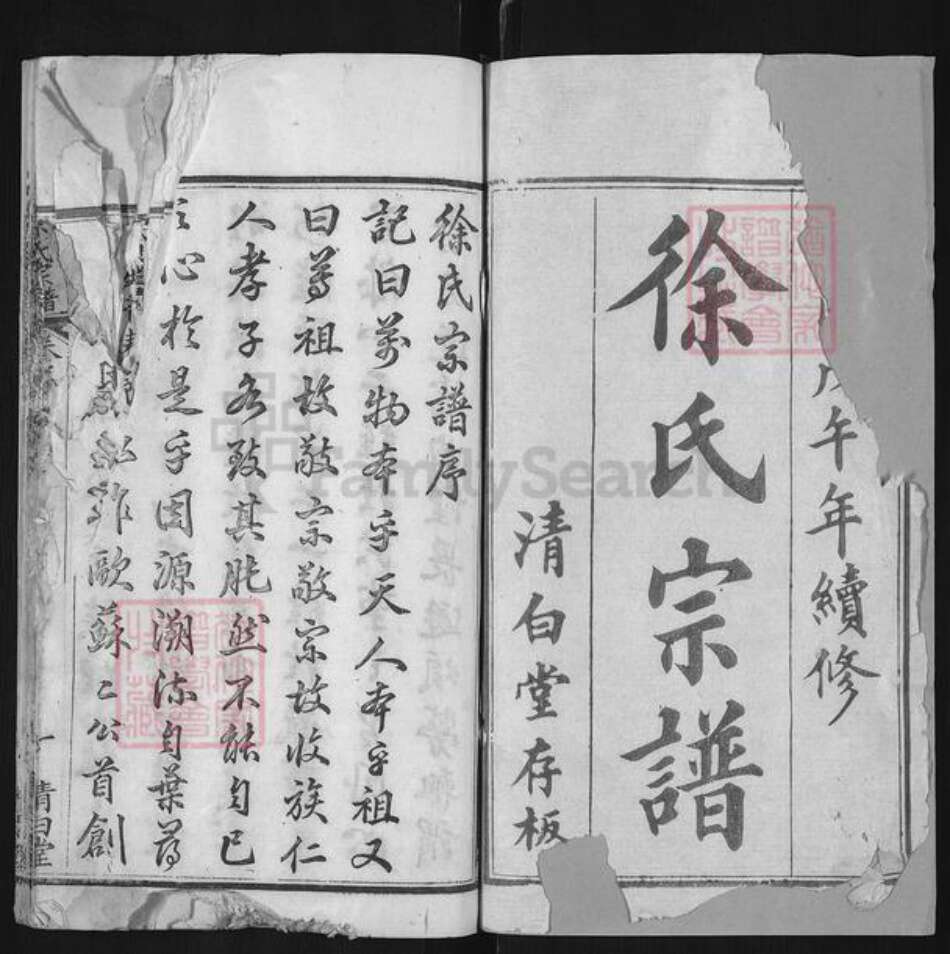 戊午年續修
徐氏宗譜
清白堂存板
徐氏宗譜序
記曰萬物本乎天人本乎祖又
曰尊祖故敬宗敬宗故收族仁
人孝子各致其眊然不能自已
之心於是乎因源溯流自葉尋
歐蘇二公首創
徐氏宗譜
一
清白堂
FamilySearch